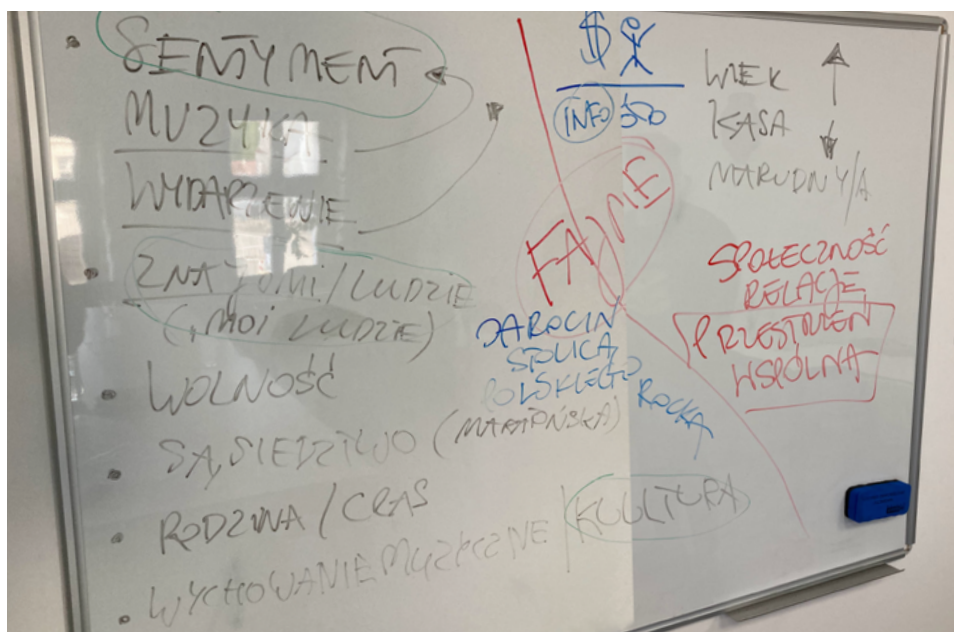 SENTYMENT
MUZYKA
WYDARZENIE
ZNAJOMI/LUDZIE
(„MOI LUDZIE)
WOLNOŚĆ
SĄSIEDZTWO (MARTIŃSKA)
RODZINA / CZAS
WYCHOWANIE MUZYCZNE / KULTURA
$
INFO
FAJNE
JAROCIN
STOLICA
POLSKIEGO
ROCKA
WIEK
KASA
MARUDNY/A
SPOŁECZNOŚĆ
RELACJE
PRZESTRZEŃ
WSPÓLNA